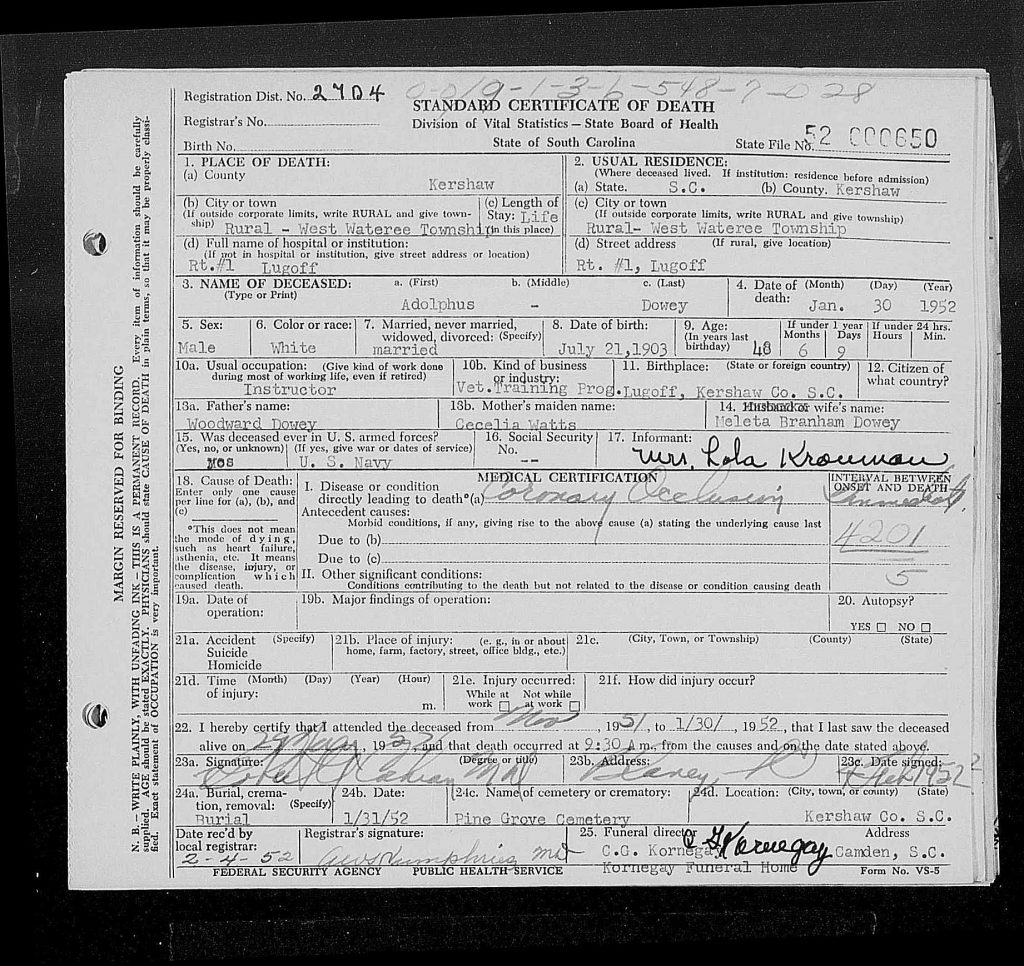 0-019-1-3-6-548-7-0 28
Registration Dist. No. 2704
STANDARD CERTIFICATE OF DEATH
Registrar's No.
Division of Vital Statistics — State Board of Health
Birth No.
State of South Carolina
State File No. 52 000650
1. PLACE OF DEATH:
(a) County
Kershaw
2. USUAL RESIDENCE:
(Where deceased lived. If institution: residence before admission)
(a) State. S.C. (b) County. Kershaw
(b) City or town
(If outside corporate limits, write RURAL and give town-
ship) Rural - West Wateree Township
(c) Length of
Stay: Life
(in this place)
(c) City or town
(If outside corporate limits, write RURAL and give township)
Rural- West Wateree Township
(d) Full name of hospital or institution:
(If not in hospital or institution, give street address or location)
Rt.#1 Lugoff
(d) Street address (If rural, give location)
Rt. #1, Lugoff
3. NAME OF DECEASED:
(Type or Print)
a. (First) b. (Middle) c. (Last)
Adolphus - Dowey
4. Date of (Month) (Day) (Year)
death: Jan. 30 1952
5. Sex:
Male
6. Color or race:
White
7. Married, never married,
widowed, divorced: (Specify)
married
8. Date of birth:
July 21,1903
9. Age:
(In years last
birthday) 48
If under 1 year
Months Days
6 9
If under 24 hrs.
Hours Min.
10a. Usual occupation: (Give kind of work done
during most of working life, even if retired)
Instructor
10b. Kind of business
or industry:
Vet.Training Prog.
11. Birthplace: (State or foreign country)
Lugoff, Kershaw Co. S.C.
12. Citizen of
what country?
13a. Father's name:
Woodward Dowey
13b. Mother's maiden name:
Cecelia Watts
14. Husband or wife's name:
Meleta Branham Dowey
15. Was deceased ever in U. S. armed forces?
(Yes, no, or unknown) (If yes, give war or dates of service)
yes U. S. Navy
16. Social Security
No.
--
17. Informant:
Mrs. Lola Krouman
18. Cause of Death:
Enter only one cause
per line for (a), (b), and
(c)
*This does not mean
the mode of dying,
such as heart failure,
asthenia, etc. It means
the disease, injury, or
complication which
caused death.
MEDICAL CERTIFICATION
I. Disease or condition
directly leading to death*(a) Coronary Occlusion
Antecedent causes:
Morbid conditions, if any, giving rise to the above cause (a) stating the underlying cause last
Due to (b)
Due to (c)
II. Other significant conditions:
Conditions contributing to the death but not related to the disease or condition causing death
INTERVAL BETWEEN
ONSET AND DEATH
4201
5
19a. Date of
operation:
19b. Major findings of operation:
20. Autopsy?
YES NO
21a. Accident (Specify)
Suicide
Homicide
21b. Place of injury: (e. g., in or about
home, farm, factory, street, office bldg., etc.)
21c. (City, Town, or Township) (County) (State)
21d. Time (Month) (Day) (Year) (Hour)
of injury: m.
21e. Injury occurred:
While at Not while
work at work
21f. How did injury occur?
22. I hereby certify that I attended the deceased from Nov, 1951, to 1/30/, 1952, that I last saw the deceased
alive on 19 and that death occurred at 9:30 A m., from the causes and on the date stated above.
23a. Signature: (Degree or title) MD
23b. Address: Blaney, SC
23c. Date signed:
24a. Burial, crema-
tion, removal: (Specify)
Burial
24b. Date:
1/31/52
24c. Name of cemetery or crematory:
Pine Grove Cemetery
24d. Location: (City, town, or county) (State)
Kershaw Co. S.C.
Date rec'd by
local registrar:
2-4-52
Registrar's signature:
AWSHumphries MD
25. Funeral director Address
C.G. Kornegay Kornegay Camden, S.C.
Kornegay Funeral Home
FEDERAL SECURITY AGENCY PUBLIC HEALTH SERVICE Form No. VS-5
MARGIN RESERVED FOR BINDING
N. B.—WRITE PLAINLY, WITH UNFADING INK—THIS IS A PERMANENT RECORD. Every item of information should be carefully
supplied. AGE should be stated EXACTLY. PHYSICIANS should state CAUSE OF DEATH in plain terms, so that it may be properly classi-
fied. Exact statement of OCCUPATION is very important.